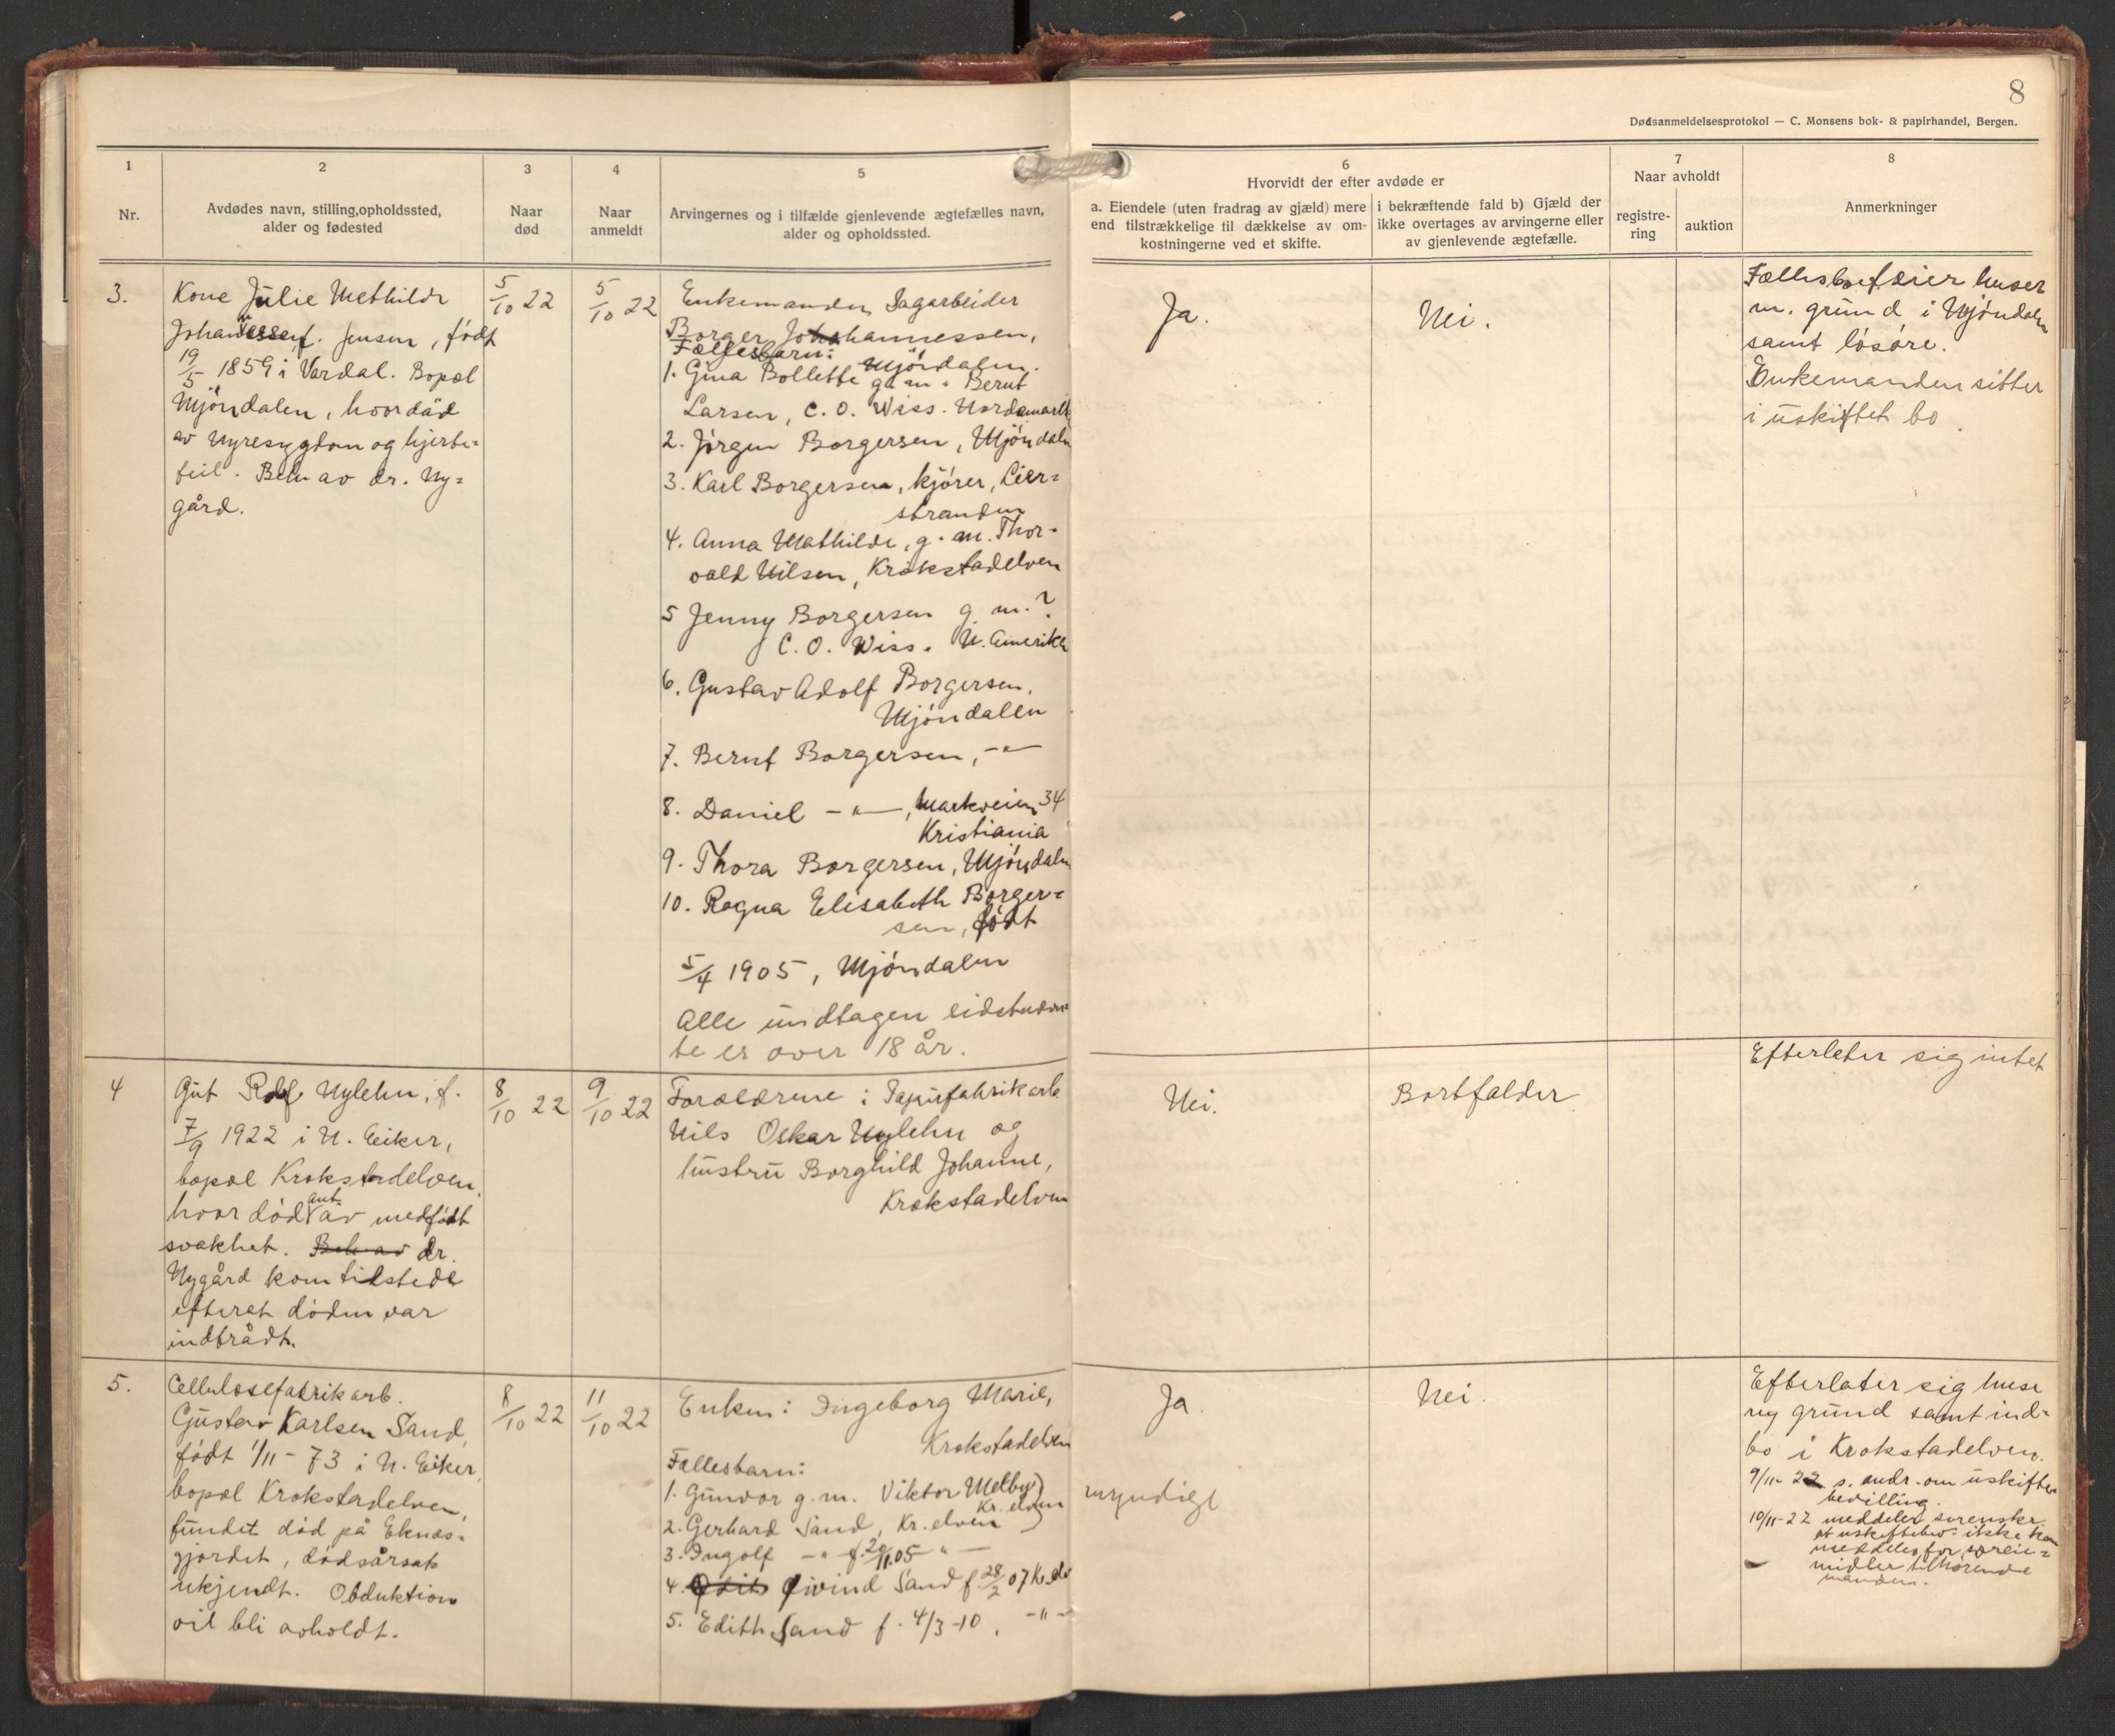 8
Dødsanmeldelsesprotokol — C. Monsens bok- & papirhandel, Bergen.
1
Nr.
2
Avdødes navn, stilling, opholdssted,
alder og fødested
3
Naar
død
4
Naar
anmeldt
5
Arvingernes og i tilfælde gjenlevende ægtefælles navn,
alder og opholdssted.
6
Hvorvidt der efter avdøde er
a. Eiendele (uten fradrag av gjæld) mere
end tilstrækkelige til dækkelse av om-
kostningerne ved et skifte.
i bekræftende fald b) Gjæld der
ikke overtages av arvingerne eller
av gjenlevende ægtefælle.
7
Naar avholdt
registre-
ring
auktion
8
Anmerkninger
3.
Kone Julie Methilde
Johannessen f. Jensen, født
19/5 1859 i Vardal. Bopæl
Mjøndalen, hvor død
av nyresygdom og hjerte-
feil. Beh av dr. Ny-
gård.
5/10 22
5/10 22
Enkemanden Sagarbeider
Borger Johannessen,
Mjøndalen.
Fællesbarn:
1. Gina Bollette g. m. Bernt
Larsen, C. O. Wiss. Nordamerik
2. Jørgen Borgersen, Mjøndalen
3. Karl Borgersen, kjører, Lier-
stranden
4. Anna Mathilde, g. m. Thor-
vald Nilsen, Krokstadelven
5 Jenny Borgersen g. m. ?
C. O. Wiss. N. Amerika
6. Gustav Adolf Borgersen,
Mjøndalen
7. Bernt Borgersen, -"-
8. Daniel -"-, Markveien 34
Kristiania
9. Thora Borgersen, Mjøndalen
10. Ragna Elisabeth Borger-
sen, født
5/4 1905, Mjøndalen
Alle undtagen sidstnævn-
te er over 18 år.
Ja.
Nei.
Fællesboet eier huser
m. grund i Mjøndalen
samt løsøre.
Enkemanden sitter
i uskiftet bo.
4
Gut Rolf Nylehn, f.
7/9 1922 i N. Eiker,
bopæl Krokstadelven,
hvor død ant. av medfødt
svakhet. Beh av dr.
Nygård kom tilstede
efterat døden var
indtrådt.
8/10 22
9/10 22
Forældrene: Papirfabrikarb.
Nils Oskar Nylehn og
hustru Borghild Johanne,
Krokstadelven
Nei.
Bortfalder
Efterlater sig intet
5.
Cellulosefabrikarb.
Gustav Karlsen Sand,
født 1/11-73 i N. Eiker,
bopæl Krokstadelven,
fundet død på Eknæs-
gjordet, dødsårsak
ukjendt. Obduktion
vil bli avholdt.
8/10 22
11/10 22
Enken: Ingeborg Marie,
Krokstadelven
Fællesbarn:
1. Gunvor g. m. Viktor Melby
Kr. elven
2. Gerhard Sand, Kr. elven
myndige
3. Ingolf -"- f. 20/11.05 -"-
4. Øivind Sand f. 28/2 07 Kr. elv
5. Edith Sand f. 4/3-10. -"-
Ja.
Nei.
Efterlater sig huse
ny grund samt ind-
bo i Krokstadelven.
9/11-22 s. andr. om uskifte-
bevilling.
10/11-22 meddeler sorenskr.
at uskiftebev. ikke kan
meddeles for særeie-
midler tilhørende
manden.